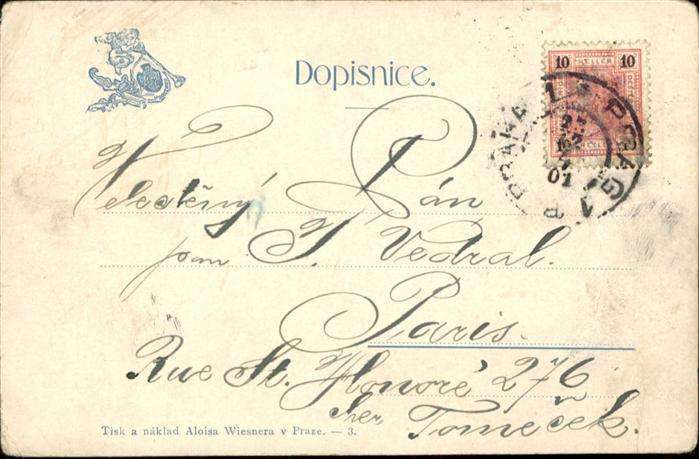 Dopisnice.
10 HELLER 10
PRAHA 1 * PRAG 1
01
Velectěný Pán
pan J. Vedral.
Paris.
Rue St. Honoré 276
chez Tomeček.
Tisk a náklad Aloisa Wiesnera v Praze. — 3.